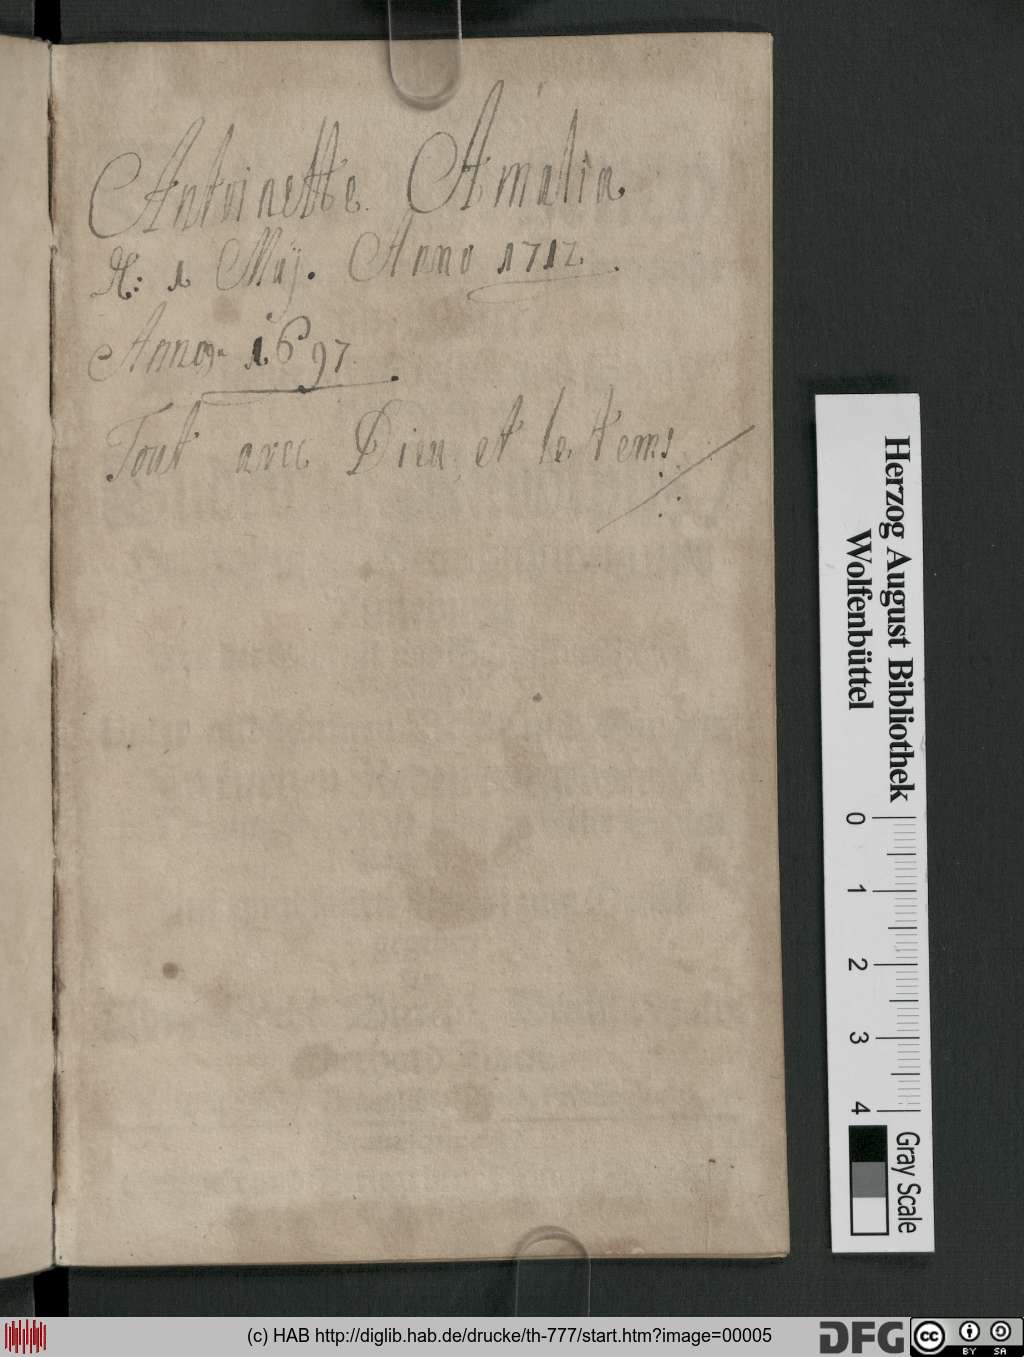 Antoinette Amalia
d: 1 Maÿ. Anno 1712.
Anno 1697.
Tout avec Dieu et le tems
Herzog August Bibliothek
Wolfenbüttel
0 1 2 3 4
Gray Scale
(c) HAB http://diglib.hab.de/drucke/th-777/start.htm?image=00005
DFG
cc BY SA